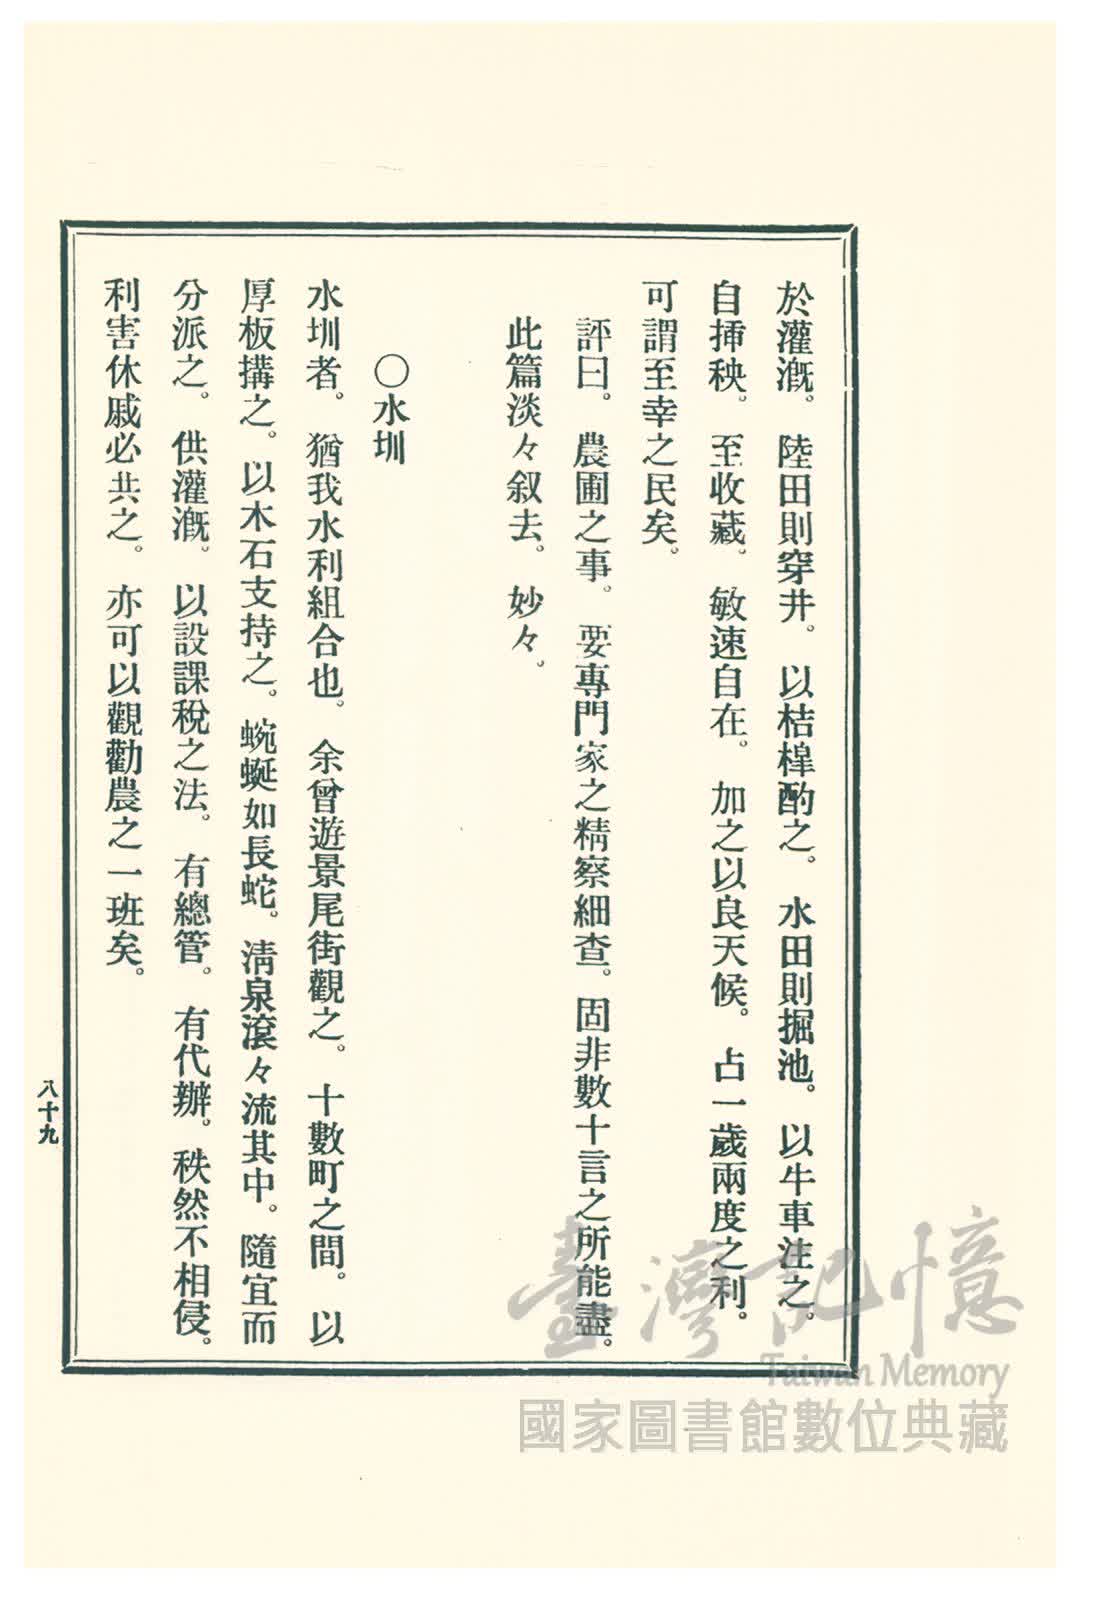 於灌漑。陸田則穿井。以桔槹酌之。水田則掘池。以牛車注之。
自揷秧。至收藏。敏速自在。加之以良天候。占一歲兩度之利。
可謂至幸之民矣。
評曰。農圃之事。要專門家之精察細查。固非數十言之所能盡。
此篇淡々叙去。妙々。
〇水圳
水圳者。猶我水利組合也。余曾遊景尾街觀之。十數町之間。以
厚板搆之。以木石支持之。蜿蜒如長蛇。淸泉滾々流其中。隨宜而
分派之。供灌漑。以設課稅之法。有總管。有代辦。秩然不相侵。
利害休戚必共之。亦可以觀勸農之一班矣。
八十九
臺灣記憶
Taiwan Memory
國家圖書館數位典藏